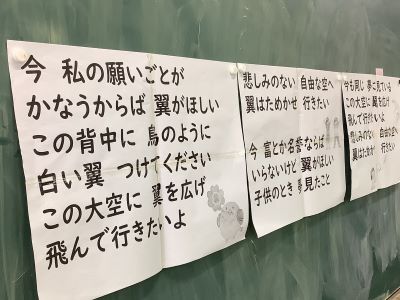 今 私の願いごとが
かなうからば 翼がほしい
この背中に 鳥のように
白い翼 つけてください
この大空に 翼を広げ
飛んで行きたいよ
悲しみのない 自由な空へ
翼はためかせ 行きたい
今 富とか名誉ならば
いらないけど 翼がほしい
子供のとき 夢見たこと
今も同じ 夢に見ている
この大空に 翼を広げ
飛んで行きたいよ
悲しみのない 自由な空へ
翼はためかせ 行きたい